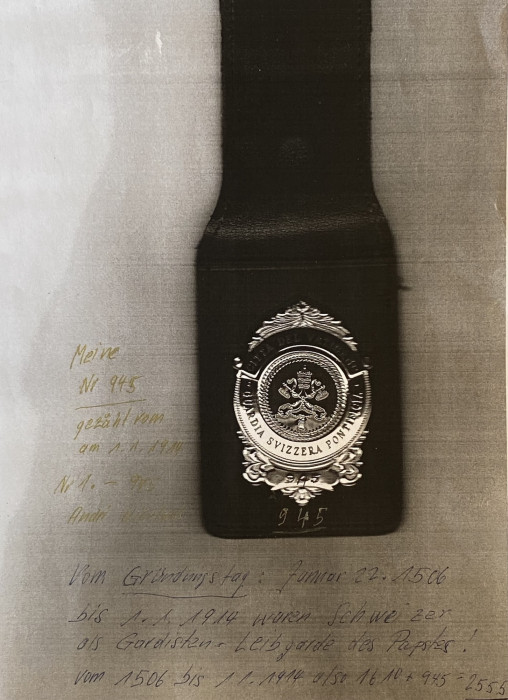 CITTÀ DEL VATICANO
GUARDIA SVIZZERA PONTIFICIA
945
945
Meine
Nr 945
gezählt vom
am 1.1.1914
Nr 1. –
Vom Gründungstag: Januar 22. 1506
bis 1.1.1914 waren Schweizer
als Gardisten - Leibgarde des Papstes!
vom 1506 bis 1 1. 1914 also 1610 + 945 = 2555